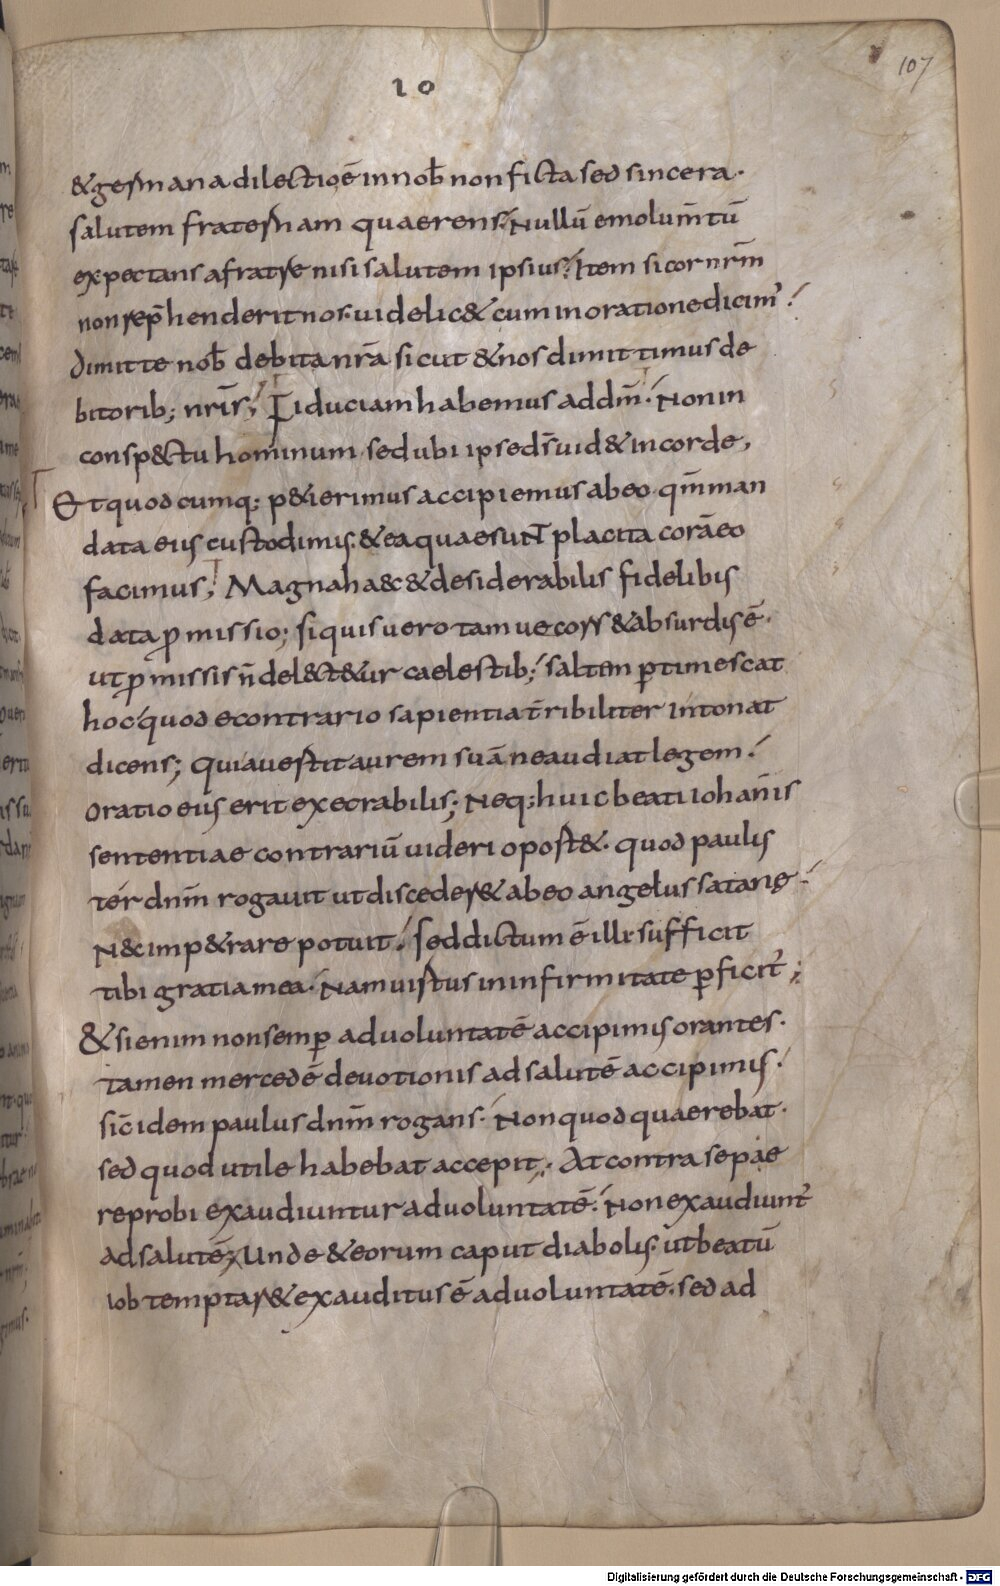 10
107
& germana dilectio ē in nob̄ non ficta sed sincera·
salutem fraternam quaerens; Nullū emolum̄tū
expectans a fratre nisi salutem ipsius; Item si cor nr̄m
non rep̄henderit nos· uidelic& cum in oratione dicim᾽;
dimitte nob̄ debita nr̄a sicut & nos dimittimus de
bitorib; nr̄is; Fiduciam habemus ad dm̄; Non in
consp&ctu hominum sed ubi ipse ds̄ uid& in corde,
Et quodcumq; p&ierimus accipiemus ab eo· qm̄ man
data eius custodimus· & ea quae suNT placita corā eo
facimus; Magna haec & desiderabilis fidelibus
data p̄missio; si quis uero tam uecors & absurdus ē·
ut p̄missis n̄ del&t&ur caelestib; saltem p̱timescat
hoc quod econtrario sapientia t̄ribiliter intonat
dicens; Qui auertit aurem suā ne audiat legem;
Oratio eius erit execrabilis; Neq; huic beati iohannis
sententiae contrariū uideri oport&· quod paulus
ter dnm̄ rogauit ut disceder& ab eo angelus satanę;
N&c imp&rare potuit; sed dictum ē illi sufficit
tibi gratia mea· Nam uirtus in infirmitate p̱ficit᾽;
& si enim non semp̱ ad uoluntatē accipimus orantes·
tamen mercedē deuotionis ad salutē accipimus;
sic̄ idem paulus dnm̄ rogans· Non quod quaerebat·
sed quod utile habebat accepit; At contra sepae
reprobi exaudiuntur ad uoluntatē; Non exaudiunt᾽
ad salutē; Unde & eorum caput diabolus· ut beatū
iob temptar& exauditus ē ad uoluntatē· sed ad
Digitalisierung gefördert durch die Deutsche Forschungsgemeinschaft - DFG